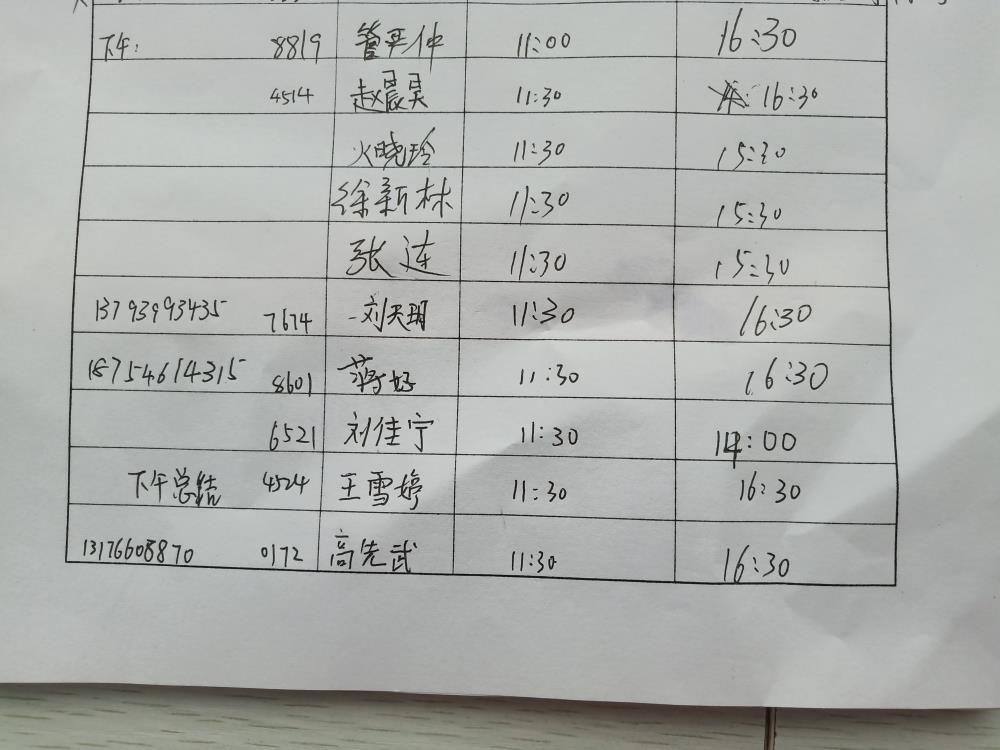 下午: 8819 管奕仲 11:00 16:30
4514 赵晨昊 11:30 16:30
火晓玲 11:30 15:30
徐新林 11:30 15:30
张连 11:30 15:30
13793993435 7674 刘天玥 11:30 16:30
18754614315 8601 蒋好 11:30 16:30
6521 刘佳宁 11:30 14:00
下午总结 4524 王雪婷 11:30 16:30
13176608870 0172 高先武 11:30 16:30